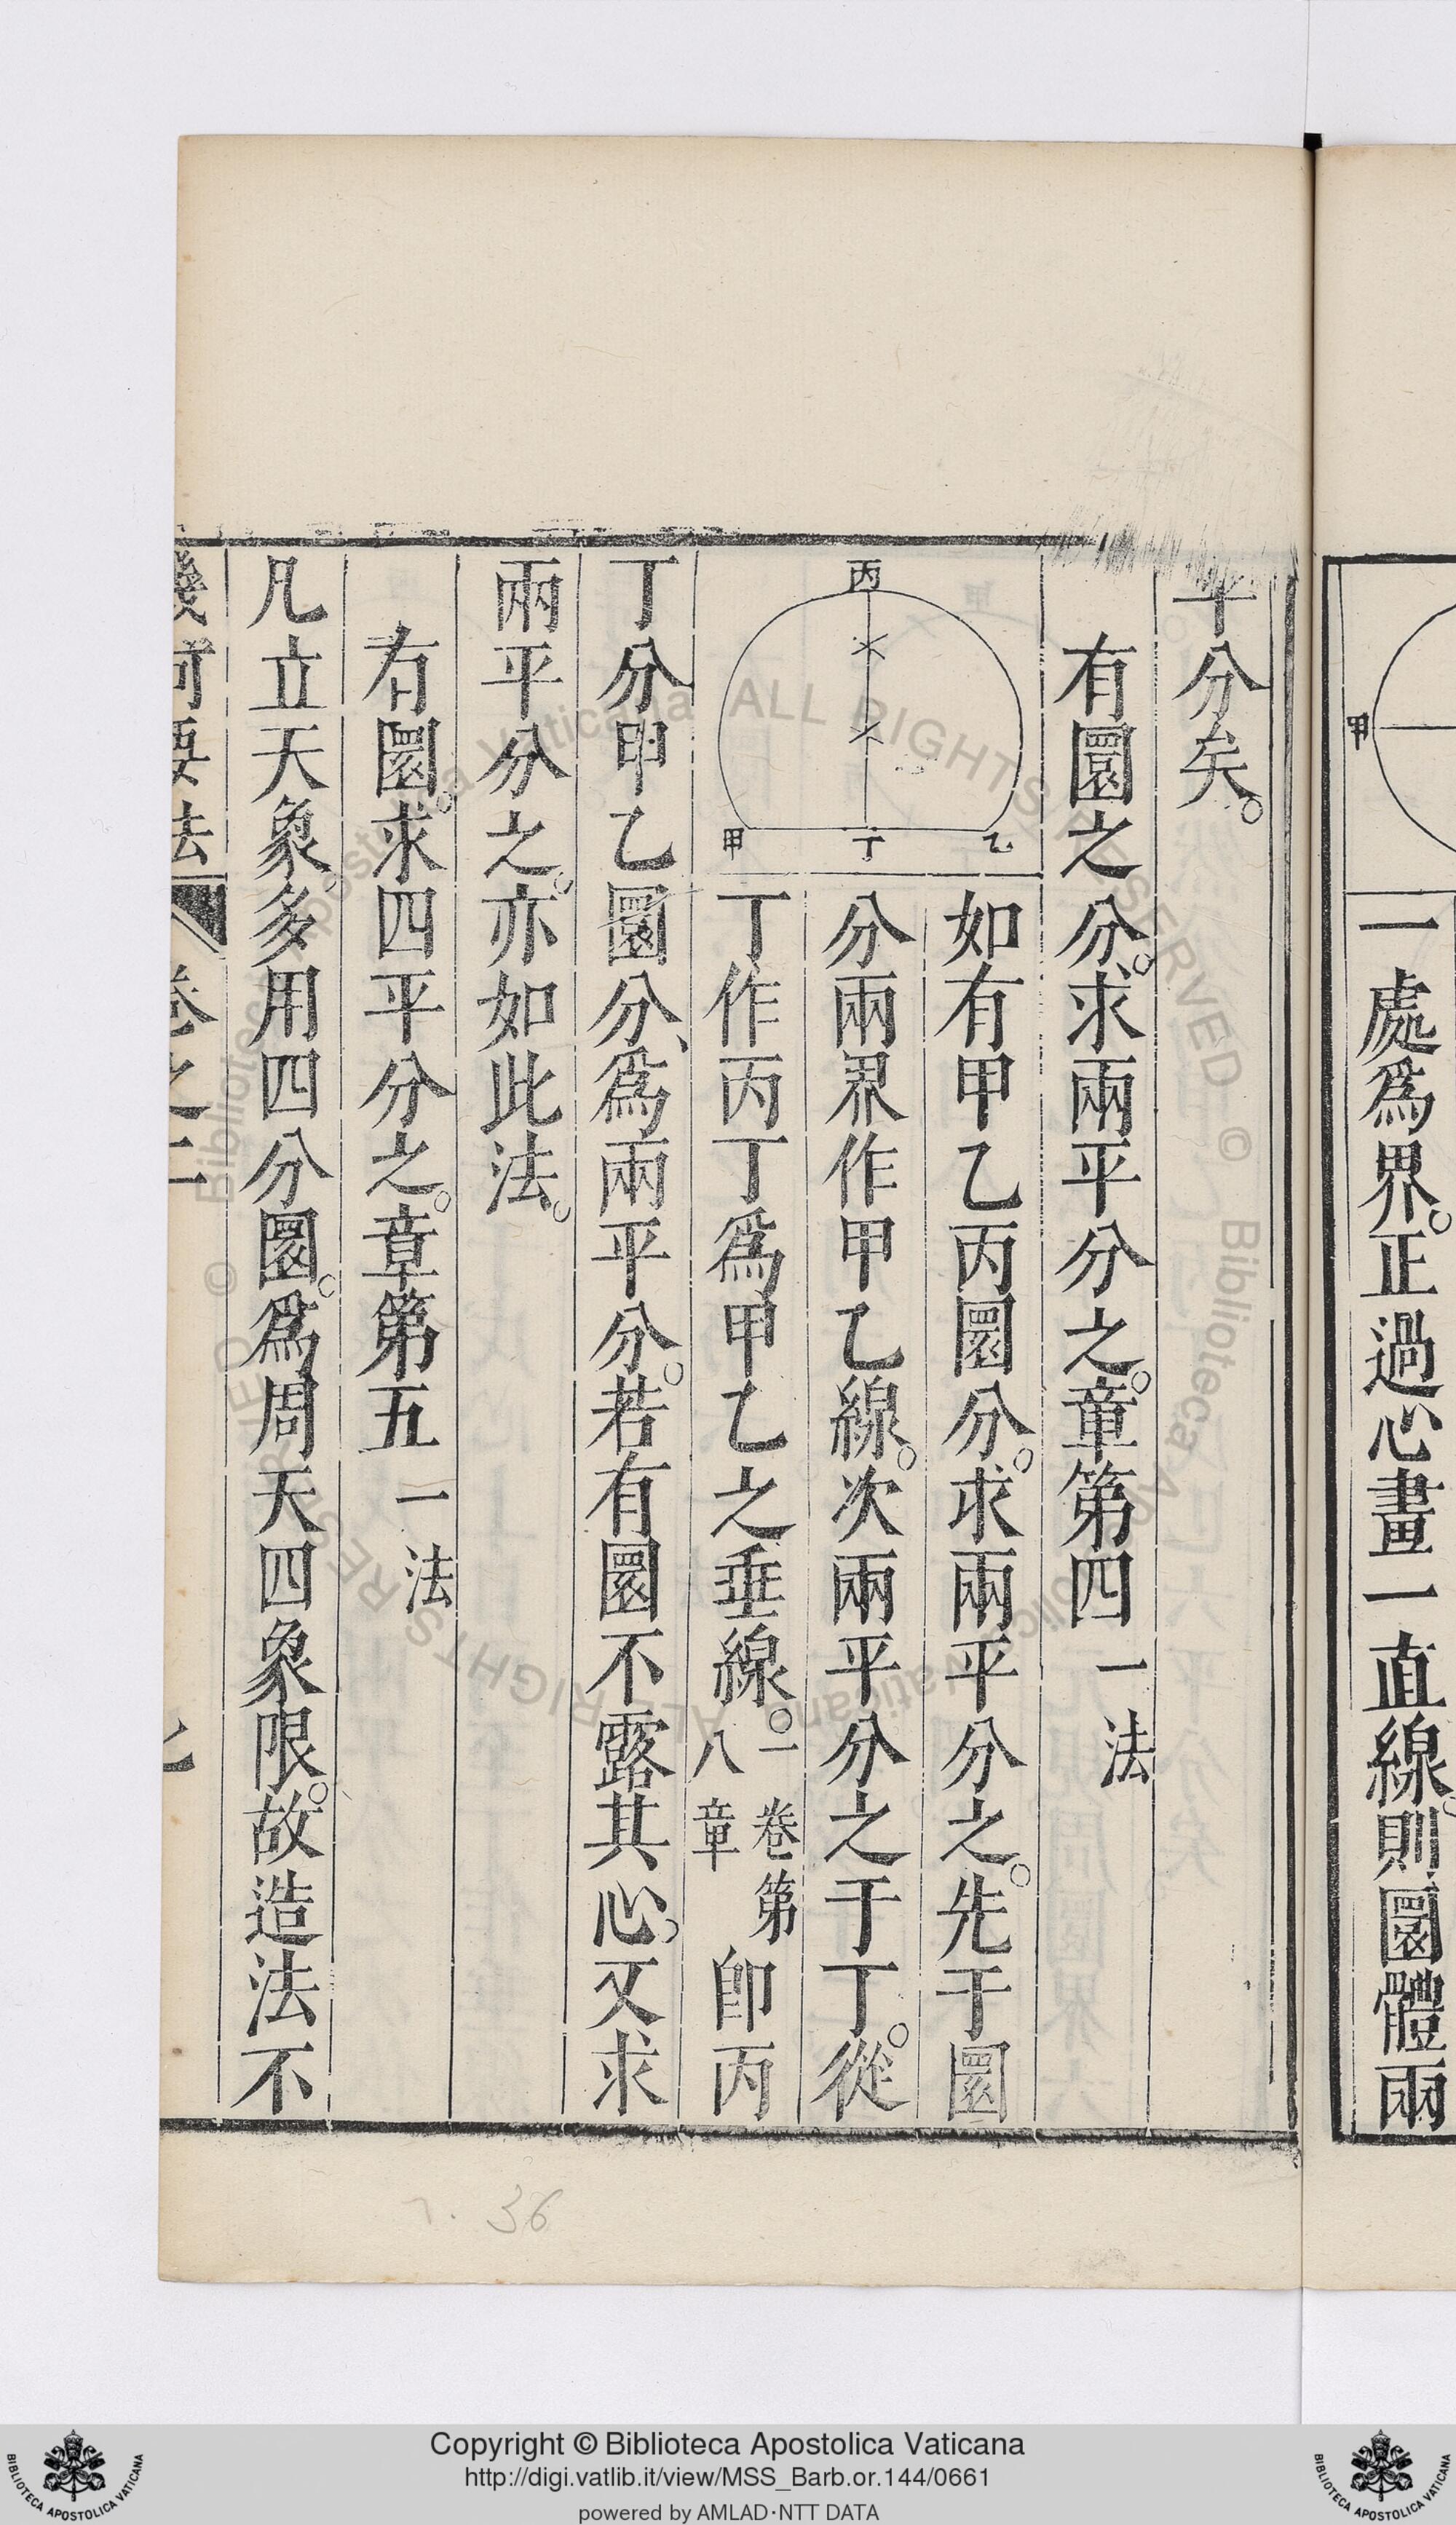 甲
一處爲界。正過心畫一直線。則圜體兩
平分矣。
有圜之分。求兩平分之。章第四 一法
丙
甲 丁 乙
如有甲乙丙圜分。求兩平分之。先于圜
分兩界作甲乙線。次兩平分之于丁。從
丁作丙丁爲甲乙之垂線。一卷第八章卽丙
丁分甲乙圜分、爲兩平分。若有圜不露其心、又求
兩平分之。亦如此法。
有圜。求四平分之。章第五 一法
凡立天象。多用四分圜。爲周天四象限。故造法不
幾何要法 卷之二
Copyright © Biblioteca Apostolica Vaticana
http://digi.vatlib.it/view/MSS_Barb.or.144/0661
powered by AMLAD·NTT DATA
BIBLIOTECA APOSTOLICA VATICANA
BIBLIOTECA APOSTOLICA VATICANA
© Biblioteca Apostolica Vaticana ALL RIGHTS RESERVED
© Biblioteca Apostolica Vaticana ALL RIGHTS RESERVED
36